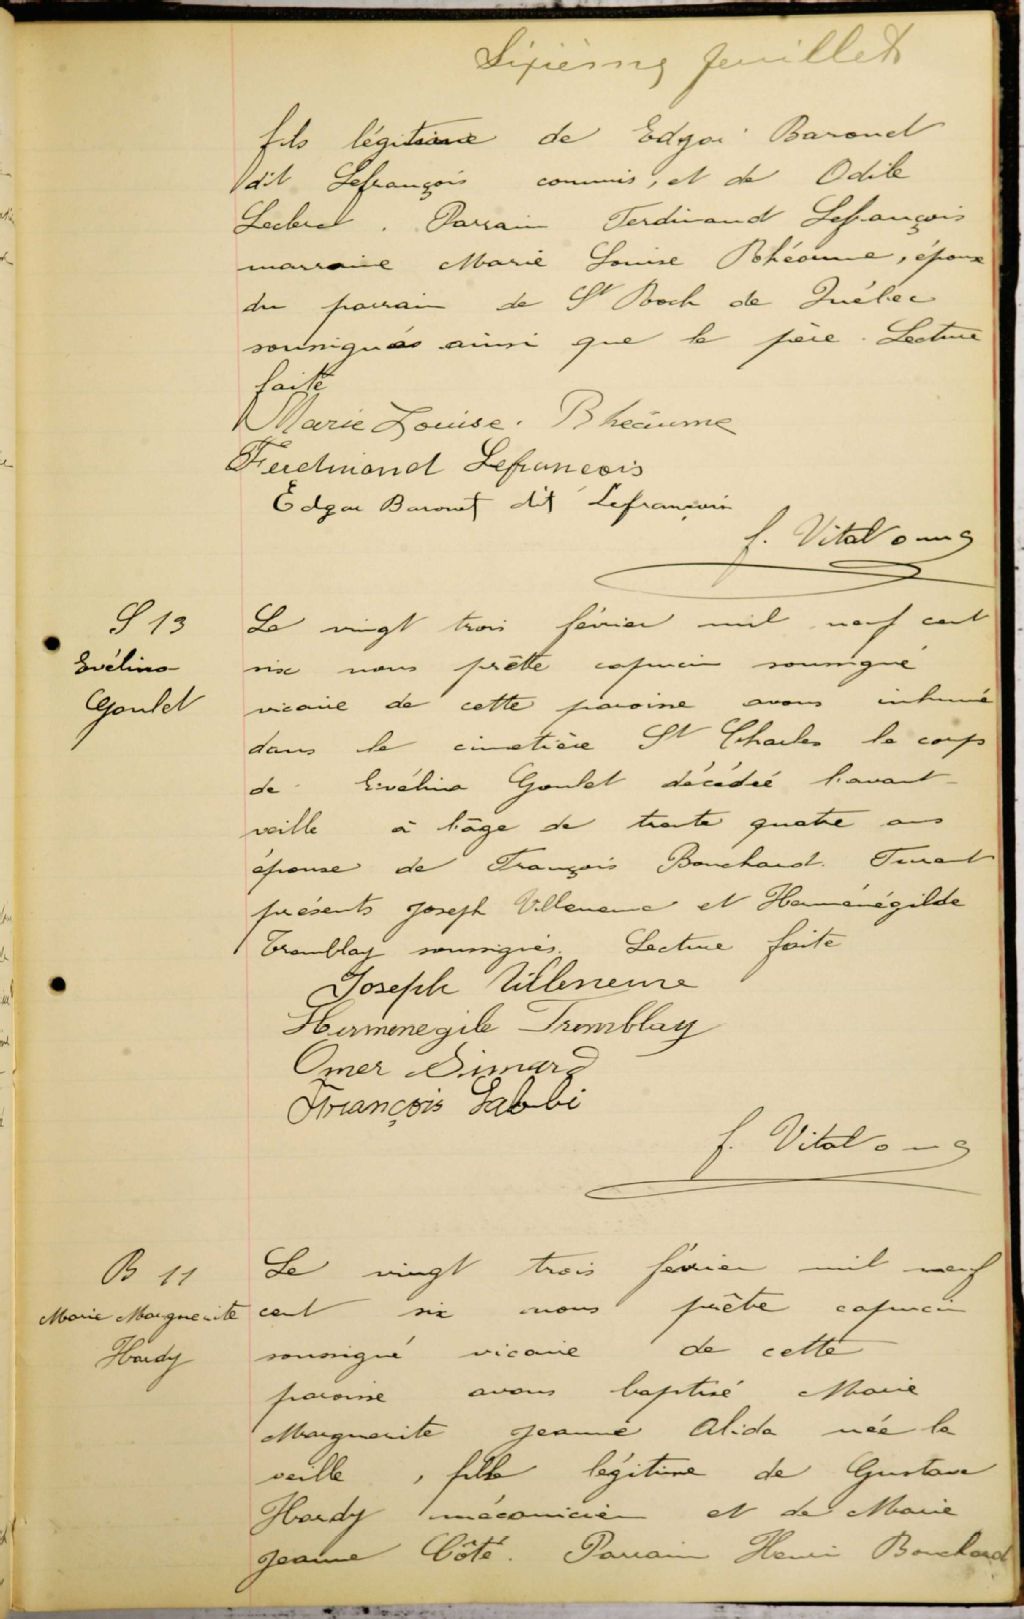 Sixième feuillet
fils légitime de Edgar Baronet
dit Lefrançois commis, et de Odile
Leclerc. Parrain Ferdinand Lefrançois
marraine Marie Louise Rhéaume, épouse
du parrain de St Roch de Québec
soussignés ainsi que le père. Lecture
faite
Marie Louise. Rhéaume
Ferdinand Lefrancois
Edgar Baronet dit Lefrançois
f. Vital o.m.c
S 13
Evélina
Goulet
Le vingt trois février mil neuf cent
six nous prêtre capucin soussigné
vicaire de cette paroisse avons inhumé
dans le cimetière St Charles le corps
de Evélina Goulet décédée l'avant-
veille à l'âge de trente quatre ans
épouse de François Bouchard. Furent
présents Joseph Villeneuve et Herménégilde
Tremblay soussignés. Lecture faite
Joseph Villeneuve
Hermenegile Tremblay
Omer Simard
François Labbé
f. Vital o.m.c
B 11
Marie Marguerite
Hardy
Le vingt trois février mil neuf
cent six nous prêtre capucin
soussigné vicaire de cette
paroisse avons baptisé Marie
Marguerite Jeanne Alida née la
veille, fille légitime de Gustave
Hardy mécanicien et de Marie
Jeanne Côté. Parrain Henri Bouchard